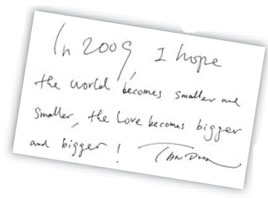 In 2009, I hope
the world becomes smaller and
smaller, the love becomes bigger
and bigger! Tan Dun